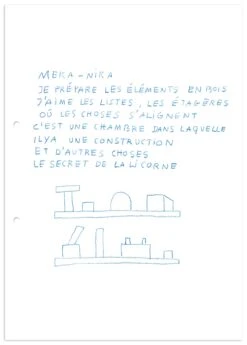 MEKA - NIKA
JE PRÉPARE LES ÉLÉMENTS EN BOIS
J'AIME LES LISTES, LES ÉTAGÈRES
OÙ LES CHOSES S'ALIGNENT
C'EST UNE CHAMBRE DANS LAQUELLE
IL Y A UNE CONSTRUCTION
ET D'AUTRES CHOSES
LE SECRET DE LA LICORNE